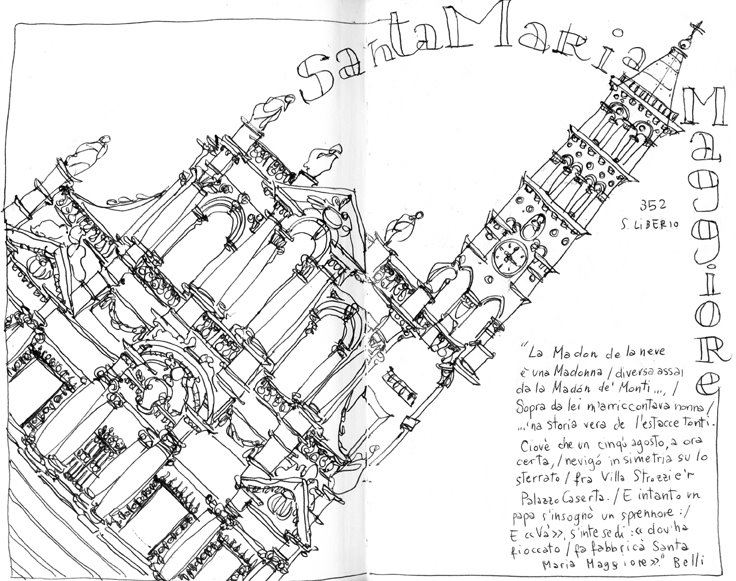 Santa Maria
Maggiore
352
S. LIBERIO
"La Madon de la neve
è una Madonna / diversa assai
da la Madón de' Monti..., /
Sopra da lei m'arriccontava nonna /
...'na storia vera de l'estacce tanti.
Ciovè che un cinqu' agosto, a ora
certa, / nevigò in simetria su lo
sterrato / fra Villa Strozzi e'r
Palazzo Caserta. / E intanto un
papa s'insognò un sprennore: /
E «Và», s'intese dì: «dov'ha
fioccato / fa fabbricà Santa
Maria Maggiore»." Belli